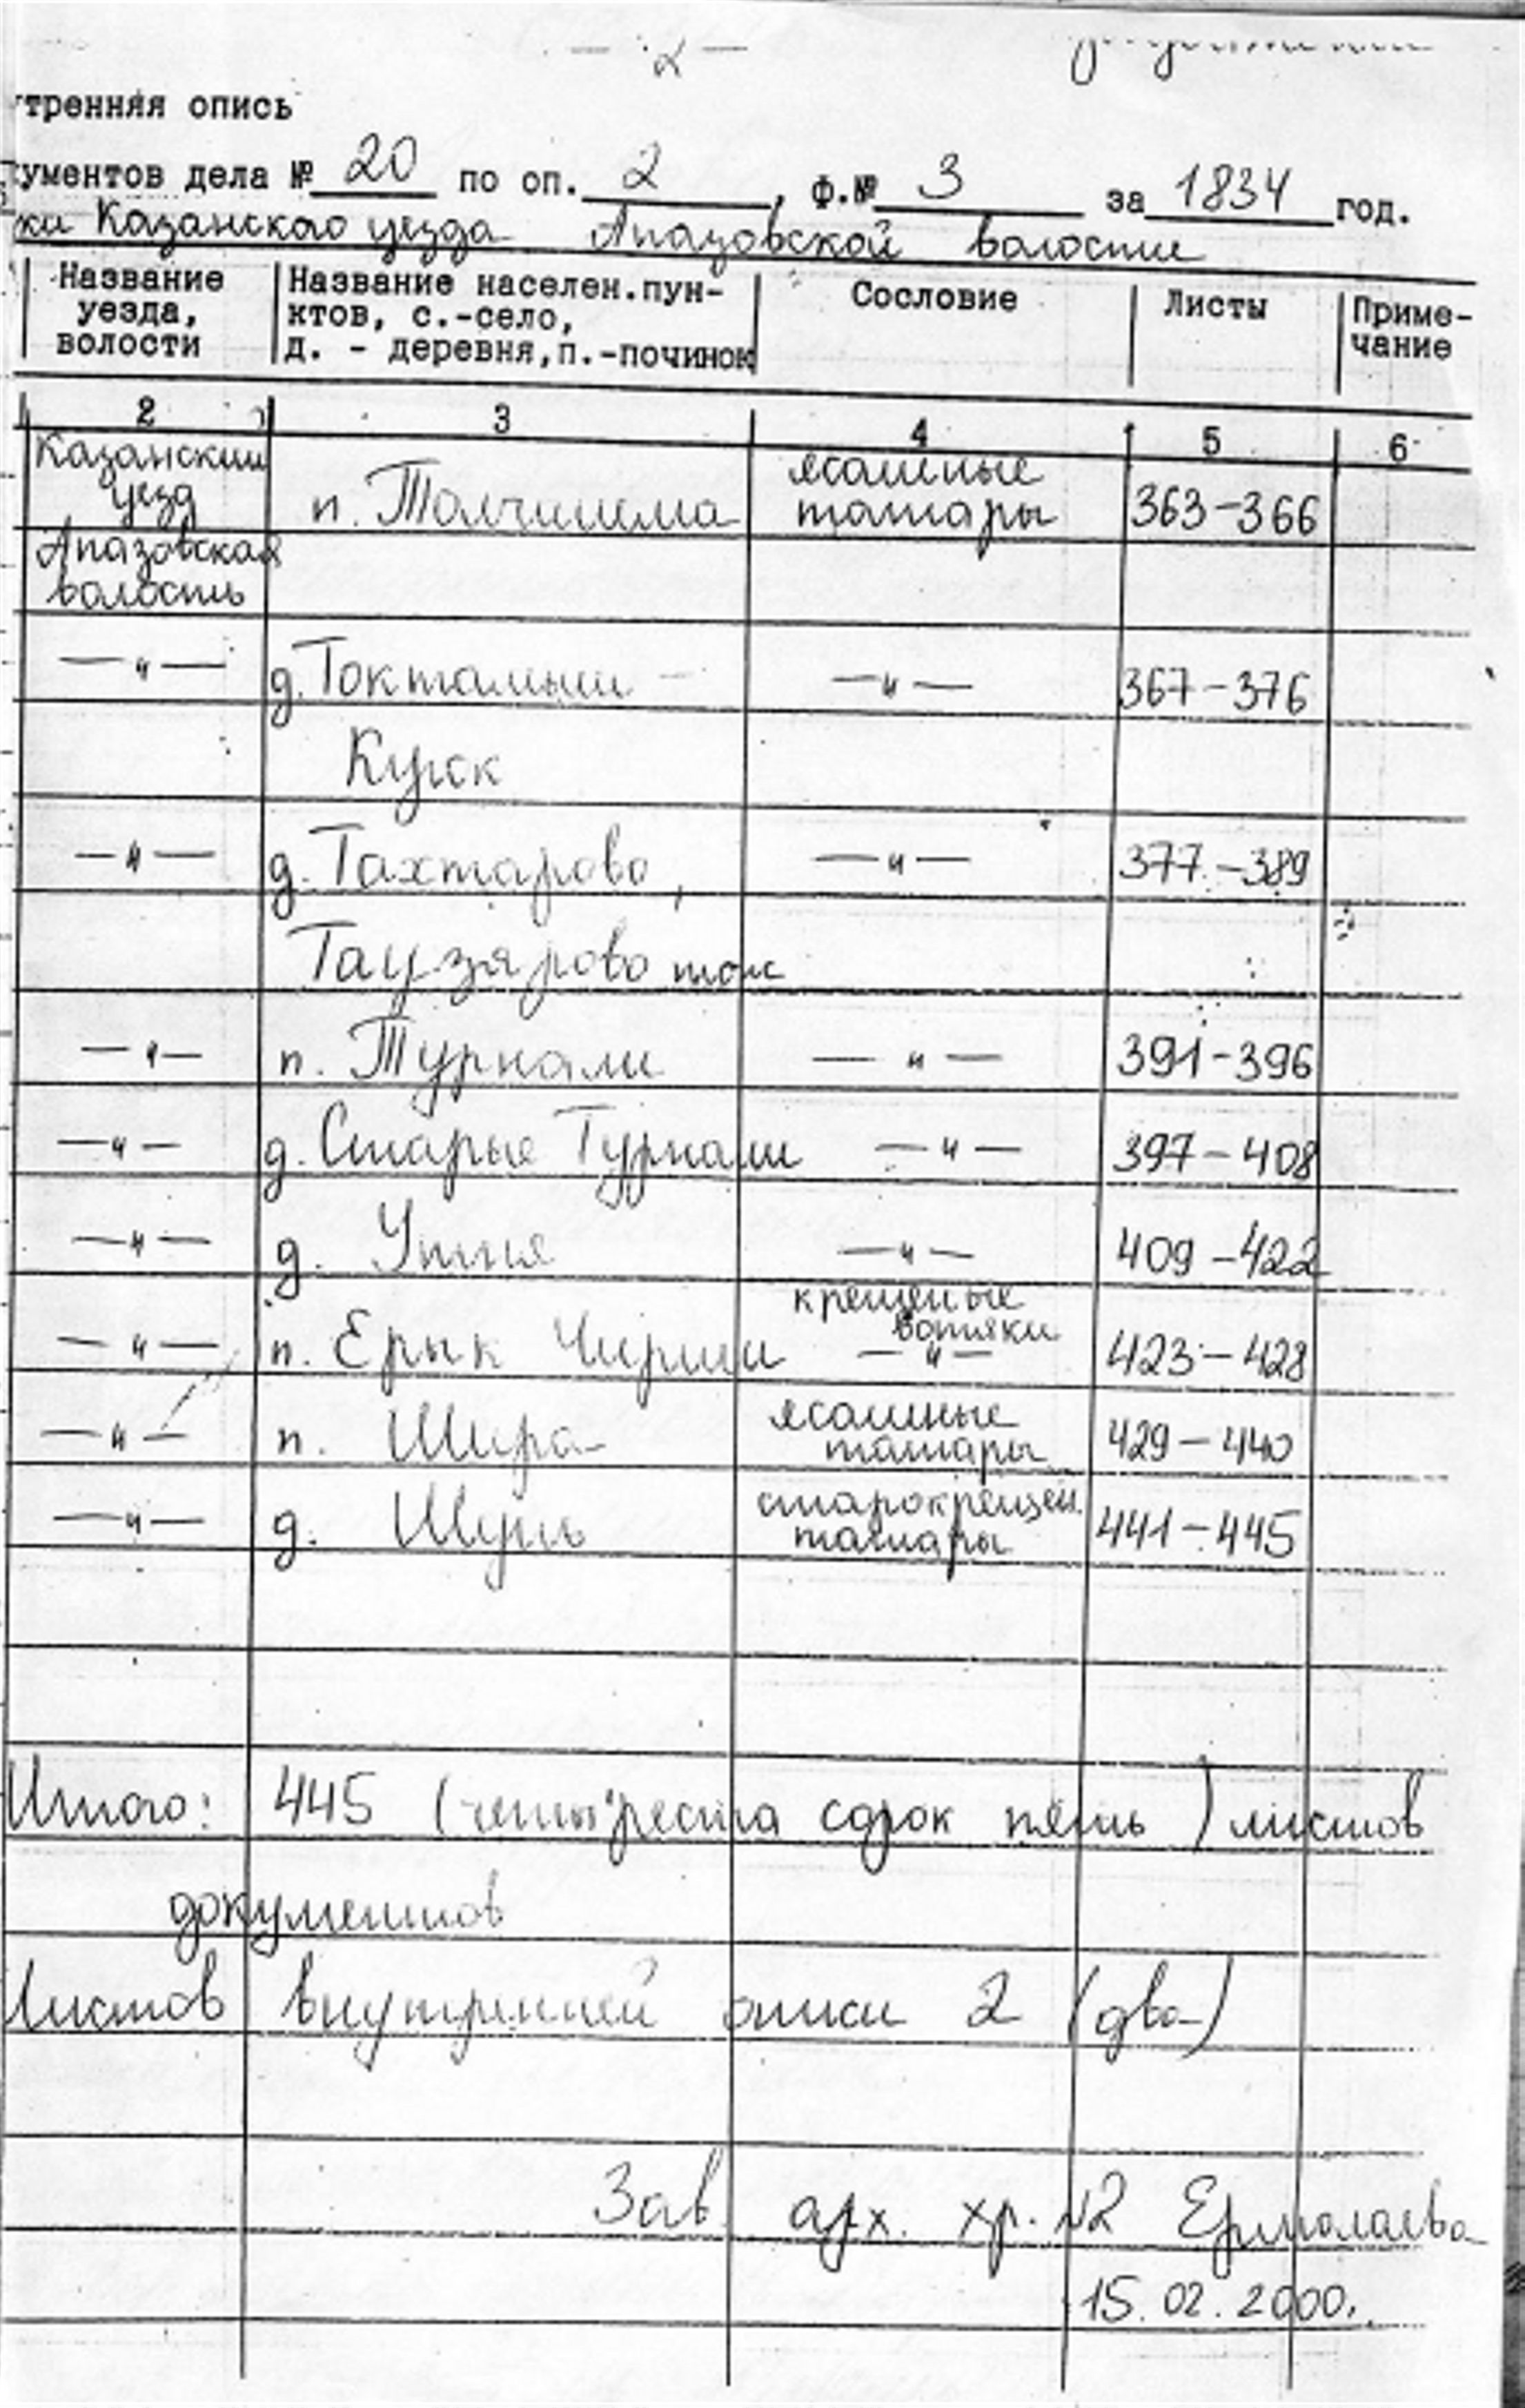 — 2 —
утренняя опись
кументов дела № 20 по оп. 2, ф.№ 3 за 1834 год.
ки Казанского уезда Апазовской волости
Название уезда, волости | Название населен.пунктов, с.-село, д. - деревня, п.-починок | Сословие | Листы | Примечание
2 3 4 5 6
Казанский уезд п. Толчишма ясашные татары 363-366
Апазовская волость
—"— д. Токтамыш —"— 367-376
Курск
—"— д. Тахтарово, —"— 377-389
Таузярово тож
—"— п. Турнали —"— 391-396
—"— д. Старые Турнали —"— 397-408
—"— д. Утня —"— 409-422
—"— п. Ерык Чирши крещеные вотяки —"— 423-428
—"— п. Шира ясашные татары 429-440
—"— д. Шунь старокрещен. татары 441-445
Итого: 445 (четыреста сорок пять) листов
документов
Листов внутренней описи 2 (два)
Зав. арх. хр. №2 Ермолаева
15.02.2000.